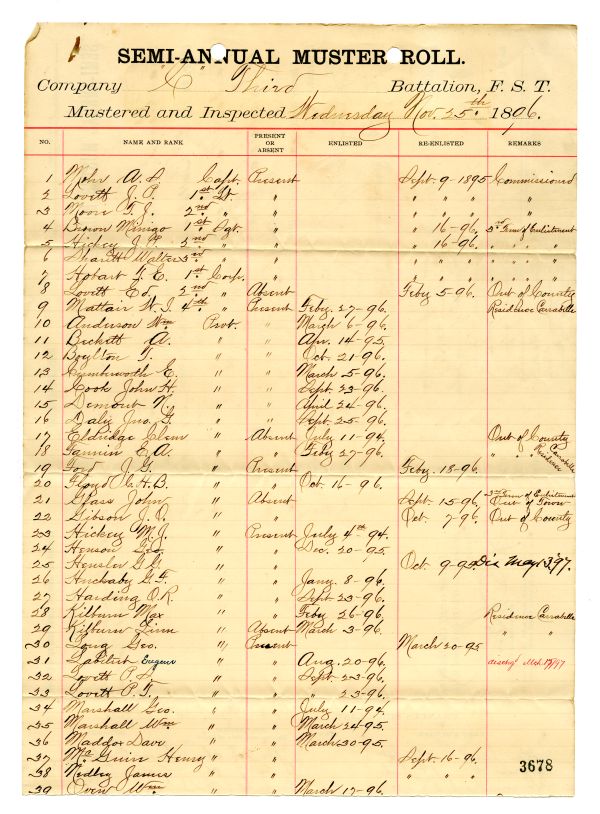 SEMI-ANNUAL MUSTER ROLL.
Company "C" Third Battalion, F. S. T.
Mustered and Inspected Wednesday Nov. 25th 1896.
NO. NAME AND RANK PRESENT OR ABSENT ENLISTED RE-ENLISTED REMARKS
1 Mohr A. Capt. Present Sept. 9-1895 Commissioned
2 Lovett J. P. 1st Lt. " " "
3 Moore T. J. 2nd " " " "
4 Brown Mingo 1st Sgt. " " 16-96. 3rd Term of Enlistment
5 Hickey J. 2nd " " " 16-96. " " "
6 Walter 3rd " " " " " " "
7 Hobart T. E. 1st Corp. " " " " " " "
8 Lovett Ed. 2nd " Absent Feby 5-96. Out of County
9 Mattair H. J. 4th " Present Feby. 27-96. Residence Carrabelle
10 Anderson Wm Privt. " March 6-96.
11 Beckett A. " " Apr. 14-95.
12 Boylton T. " " Oct. 21-96.
13 E. " " March 5-96.
14 Cook John H. " " Sept. 23-96.
15 Demont N. " " April 24-96.
16 Daly Jno. F. " " Sept. 25-96.
17 Eldridge Clem " Absent July 11-94. Out of County
18 E. A. " " Feby 27-96. " " " Residence Carrabelle
19 Ford J. G. " Present Feby. 18-96.
20 Floyd C. H. B. " " Oct. 16-96.
21 Glass John " Absent Sept. 15-96. 3rd Term of Enlistment Out of Town
22 Gibson J. " " Oct. 7-96. Out of County
23 Hickey M. J. " Present July 4th 94.
24 Henson Geo. " " Dec. 20-95.
25 Hensler G. G. " " Oct. 9-95 Dis May 3, 97.
26 Huckaby G. F. " " Jany. 8-96.
27 Harding O. R. " " Sept. 23-96.
28 Kilburn Max " " Feby 26-96. Residence Carrabelle
29 Kilburn Linn " Absent March 3-96. " "
30 Long Geo. " Present March 20-95
31 Eugene " " Aug. 20-96. dischg'd Mch 97
32 Lovett " " Sept. 23-96.
33 Lovett P. T. " " " 23-96.
34 Marshall Geo. " " July 11-94.
35 Marshall Wm " " March 24-95.
36 Maddox Dave " " March 30-95.
37 McGuin Henry " " Sept. 16-96.
38 Nedley James " " " "
39 Oven Wm " " March 17-96.
3678